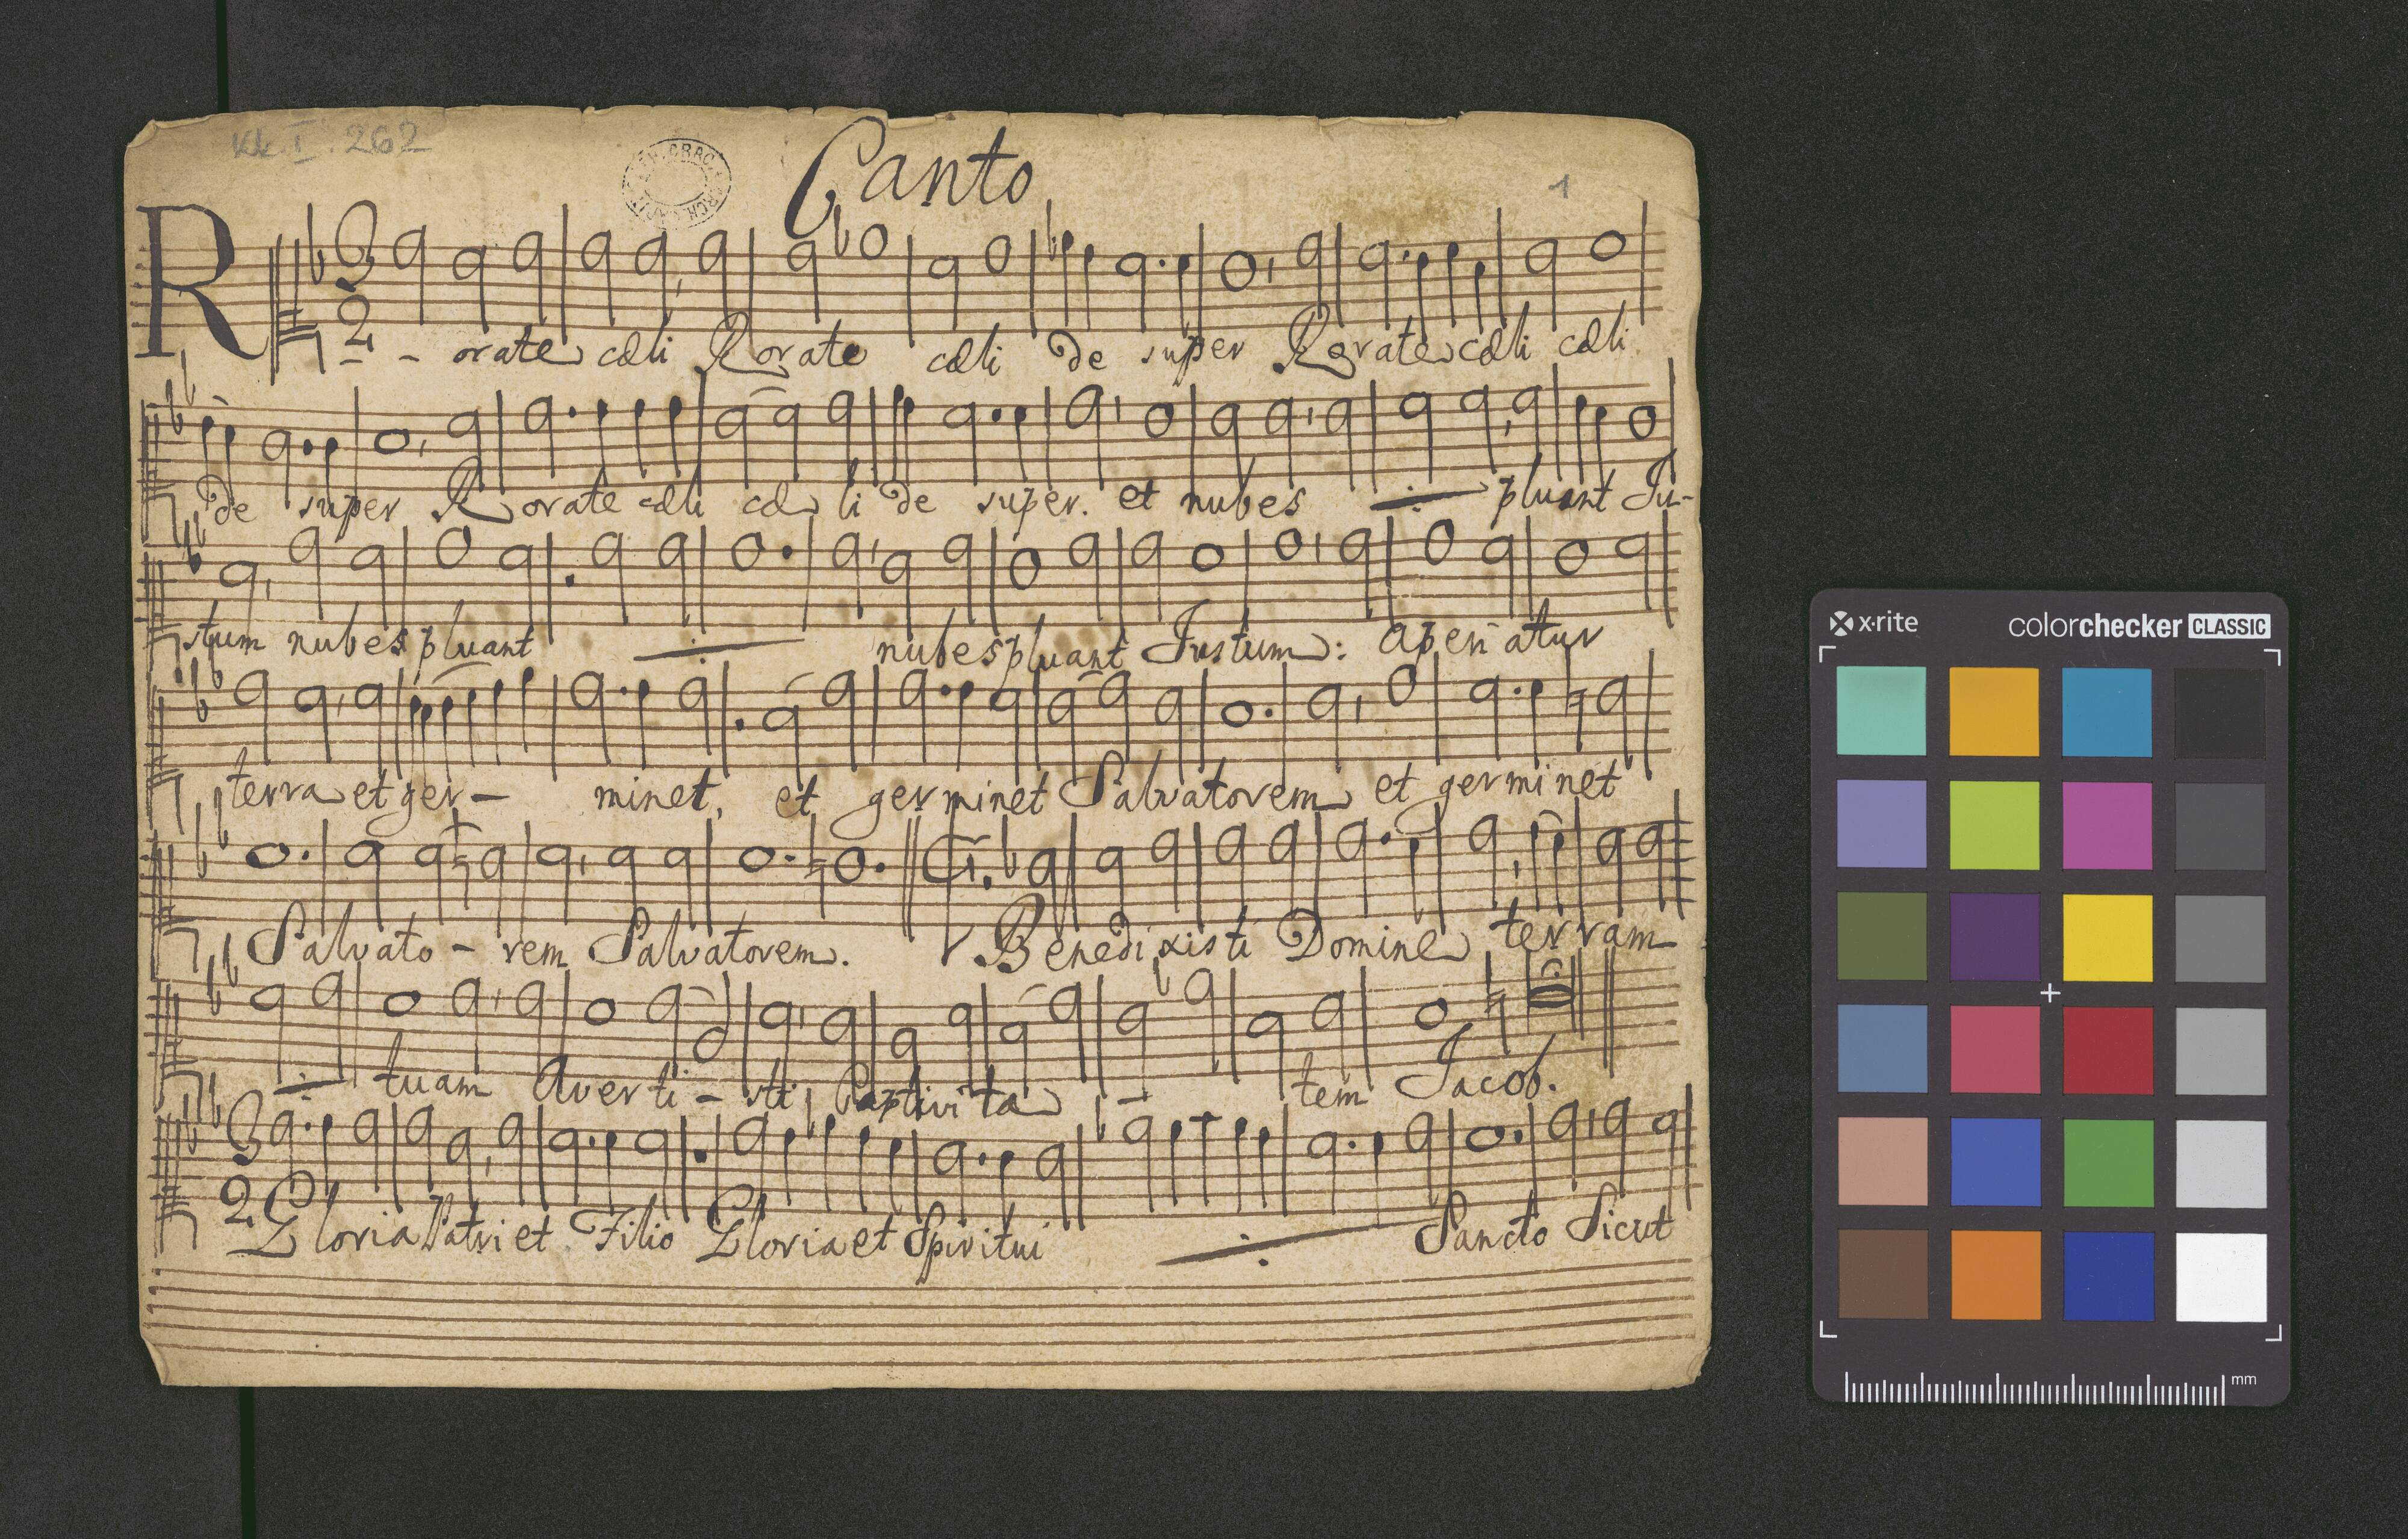 Kk.I.262
Canto
1
R
3
2
- - orate cæli Rorate cæli de super Rorate cæli cæli
de super Rorate cæli cæ li de super. et nubes ÷ pluant Ju-
stum nubes pluant ÷ nubes pluant Justum: aperiatur
terra et ger- minet, et germinet Salvatorem et germinet
Salvato - rem Salvatorem. Benedixisti Domine terram
÷ tuam Averti - sti Captivita - tem Jacob.
3
2
Gloria Patri et Filio Gloria et Spiritui ÷ Sancto Sicut
x·rite colorchecker CLASSIC
mm